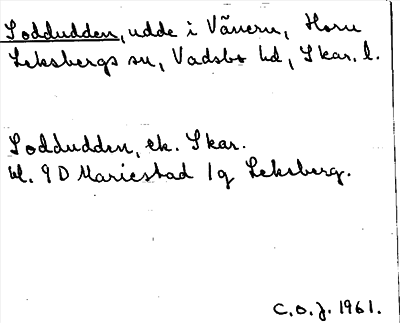 Soddudden, udde i Vänern, Horn
Leksbergs sn, Vadsbo hd, Skar. l.
Soddudden, ek. Skar.
bl. 9D Mariestad 1g Leksberg.
C.O.J. 1961.